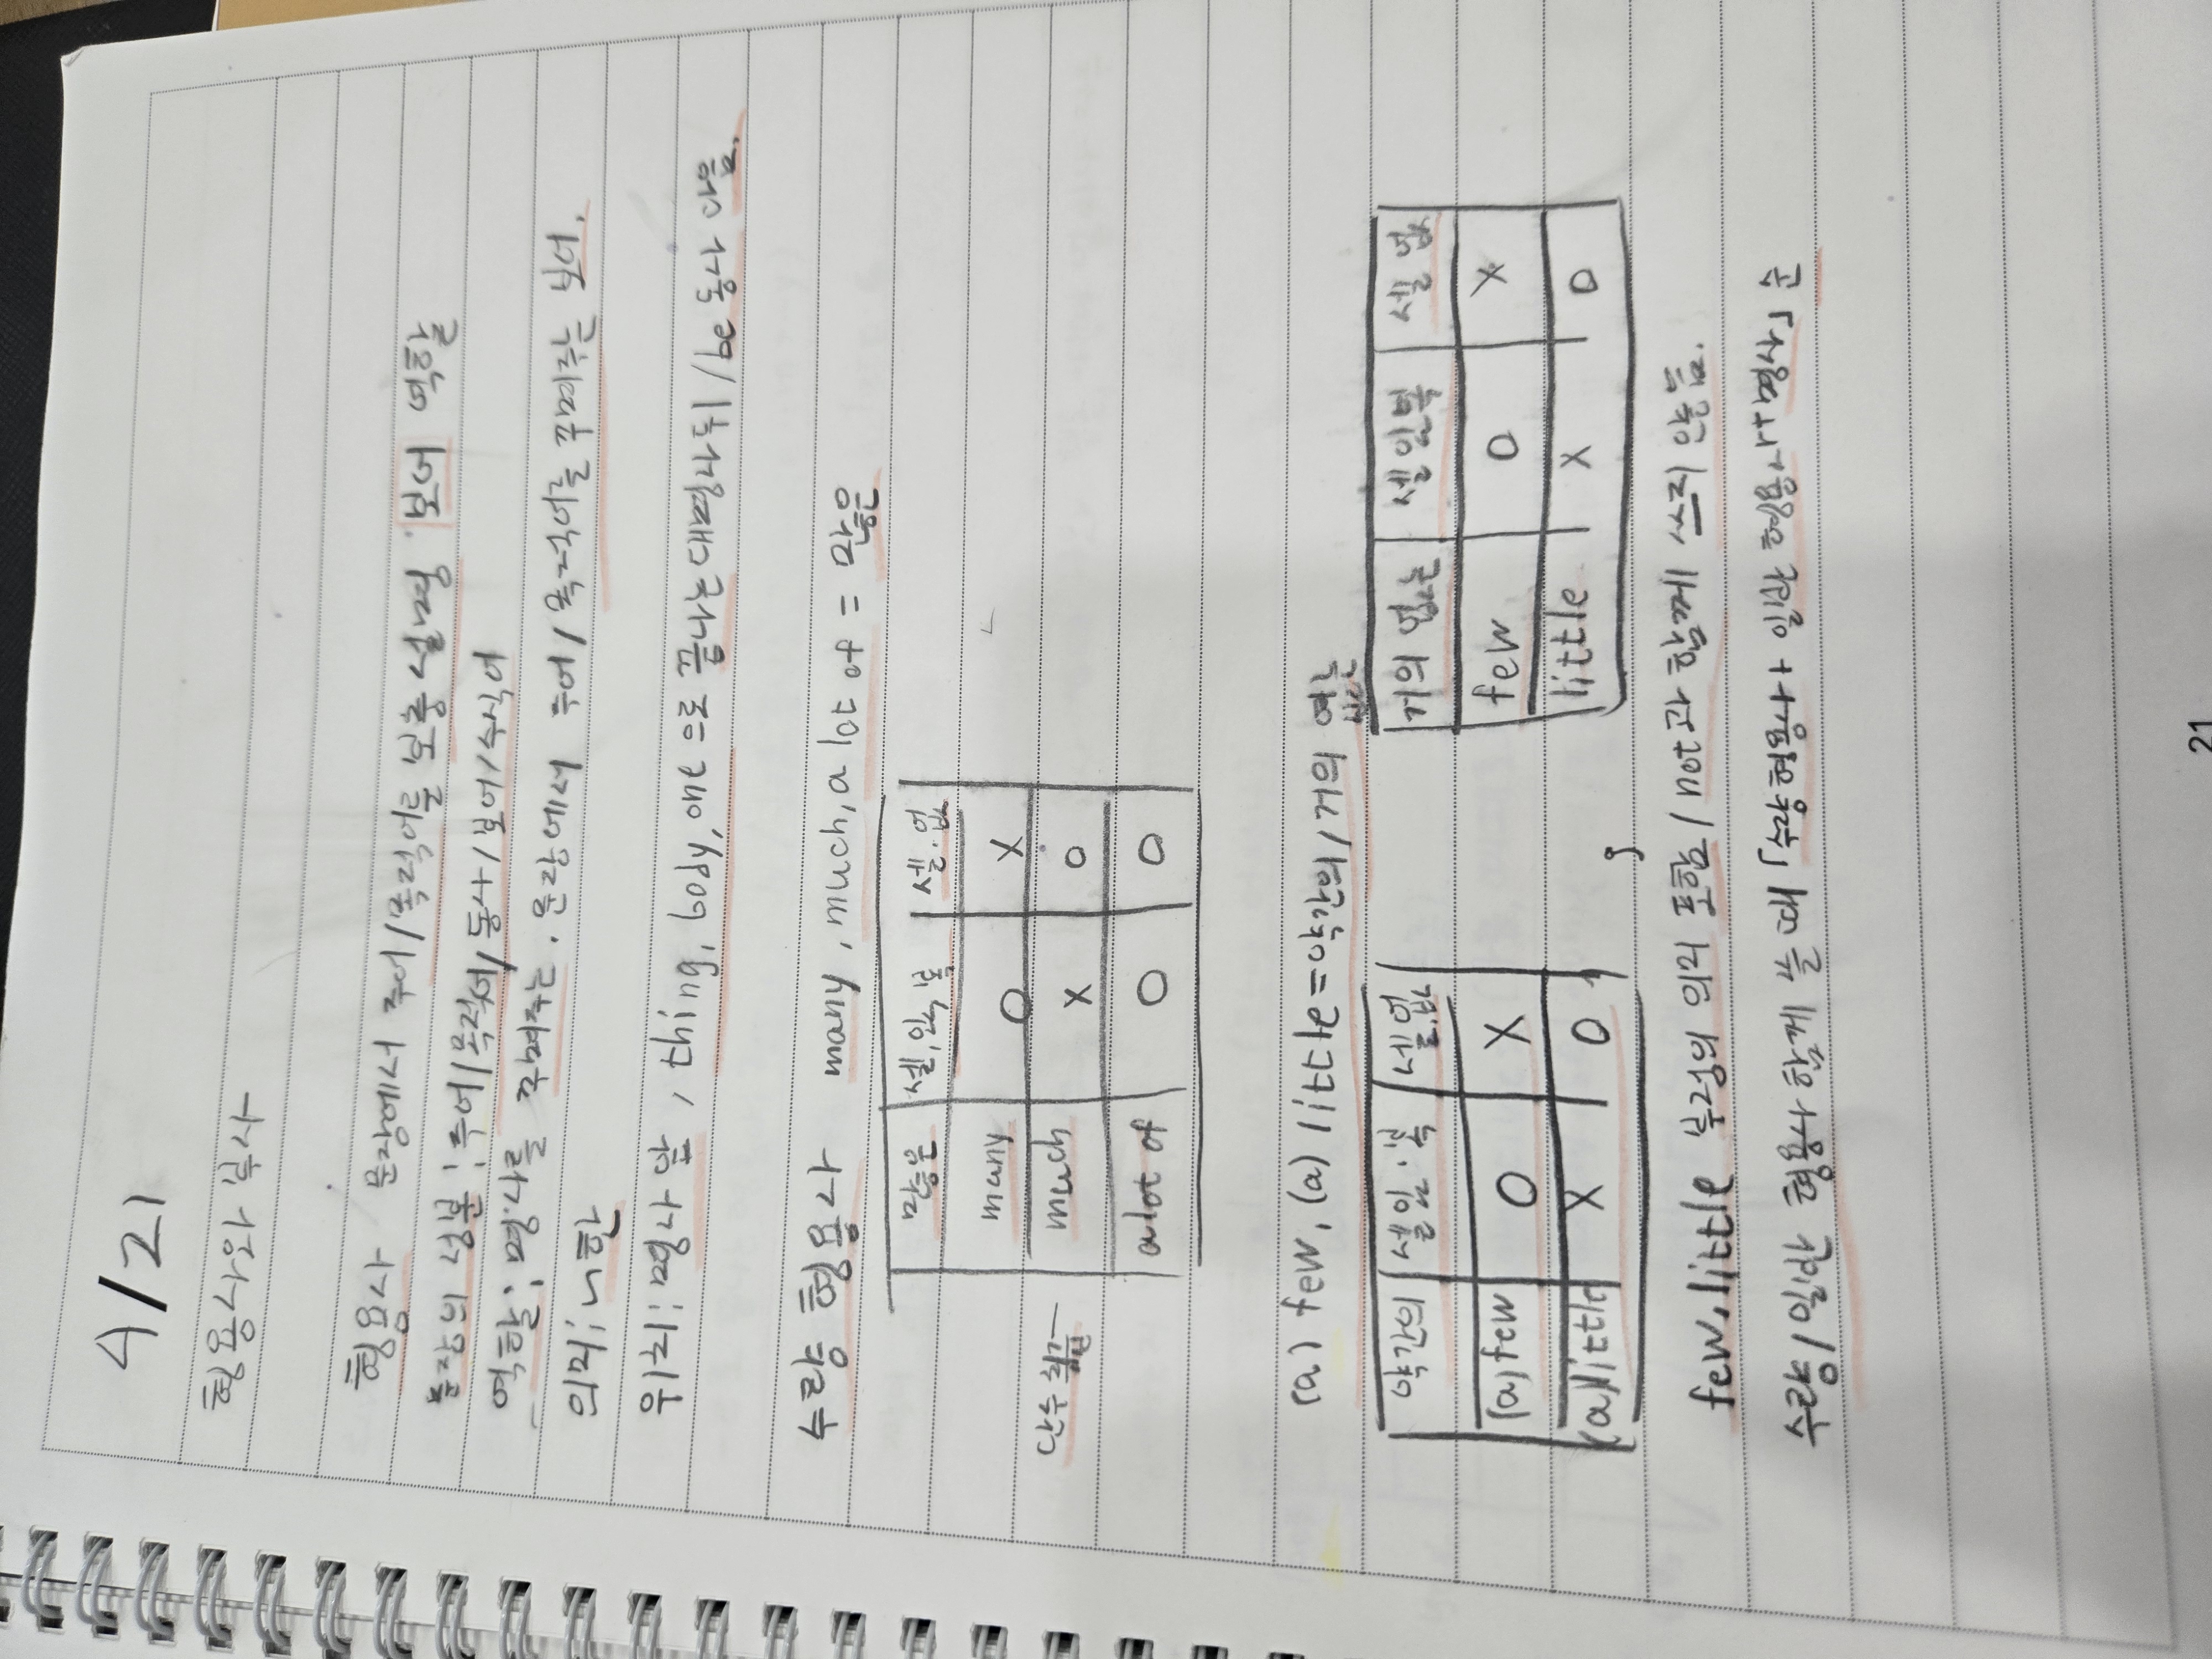 4/21
형용사와 부사
형용사 문장에서 주어/목적어를 보충 설명 보어 역할
문장의 성분: 주어/목적어/동사/보어/수식어
역할: 명사를 꾸며주는. 문장에서 주어/목적어를 꾸며주는 보어.
의미: ~한
위치: 명사 앞, thing, body, one 으로 끝나는 대명사 뒤 /be 동사 다음.
수량 형용사 many, much, a lot of = 많은
많은 셀.있.복 셀.없
many O X
단수 취급 much X O
a lot of O O
(a) few, (a) little = 약간의/거의 없는
약간의 셀있.복 셀.없 거의 없는 셀있복 셀 없
(a) few O X few O X
(a) little X O little X O
few, little 부정의 의미 포함 / not과 함께 쓰지 않음.
수량/일반 형용사 함께 쓸 때 「수량형용사+일반 형용사+명사」 순
21